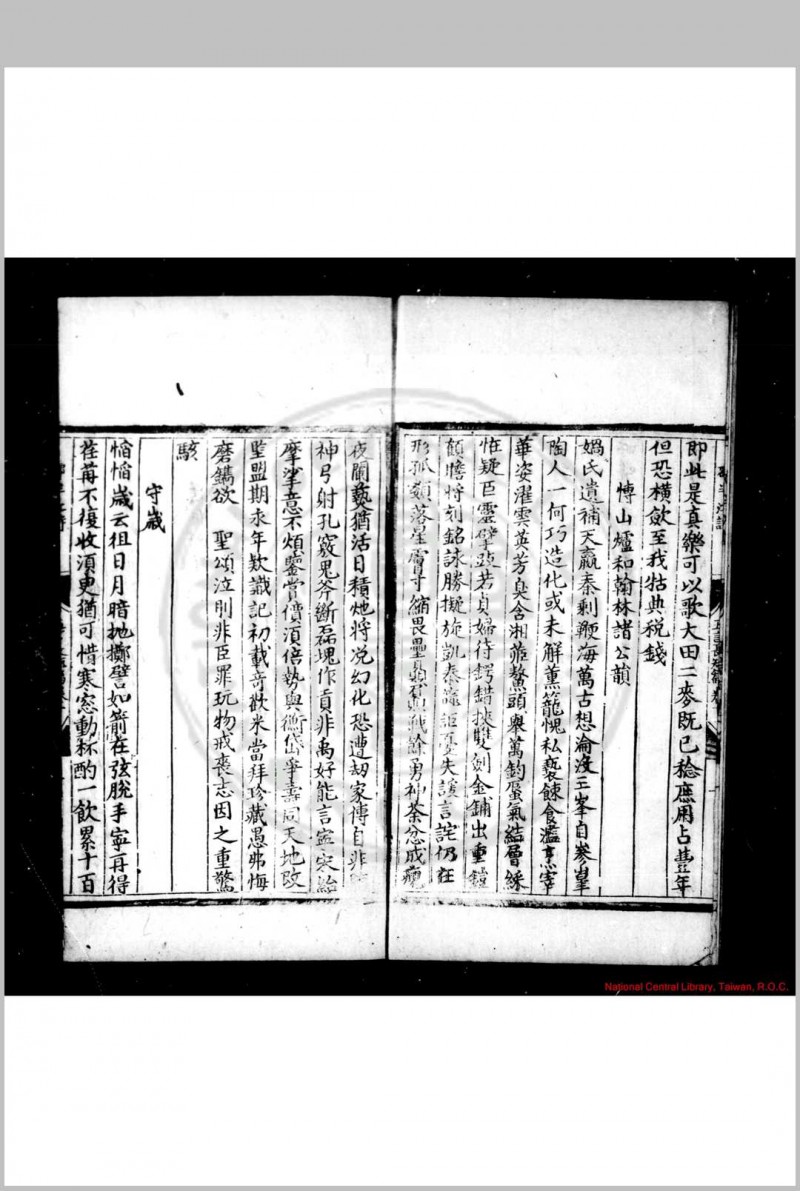 即此是真樂可以歌大田二麥既已稔庶用占豊年
但恐橫歛至我牯典税錢
愽山爐和翰林諸公韻
媧氏遺補天嬴秦剩鞭海萬古想淪沒三峯自參崒
陶人一何巧造化或未解薰籠愧私褻餗食濫烹宰
華姿濯雲英芳臭含湘茝鰲頭舉萬鈞蜃氣結層綵
恠疑巨靈擘竦若貞婦待鍔錯挾雙劍金鋪出重鎧
顛嶦將刻銘詠勝擬旋凱泰 憂失護言詫仍在
形孤 落星膚寸縮畏壘 戰餘勇神荼忿成
夜闌爇猶活日積灺將浼幻化恐遭劫家傳自非
神弓射孔竅鬼斧斷磊塊作貢非禹好能言寍宋紿
摩挲意不煩鑒賞價湏倍勢與衡岱爭壽同天地改
埾盟期永年欵識記初載竒歡米當拜珍藏愚弗悔
磨鐫欲 聖頌泣刖非臣罪玩物戒喪志因之重驚
駭
守歲
慆慆歲云徂日月暗抛擲譬如箭在弦脫手寧再得
荏苒不復收湏臾猶可惜寒窓動杯酌一飲累十百
National Central Library, Taiwan, R.O.C.